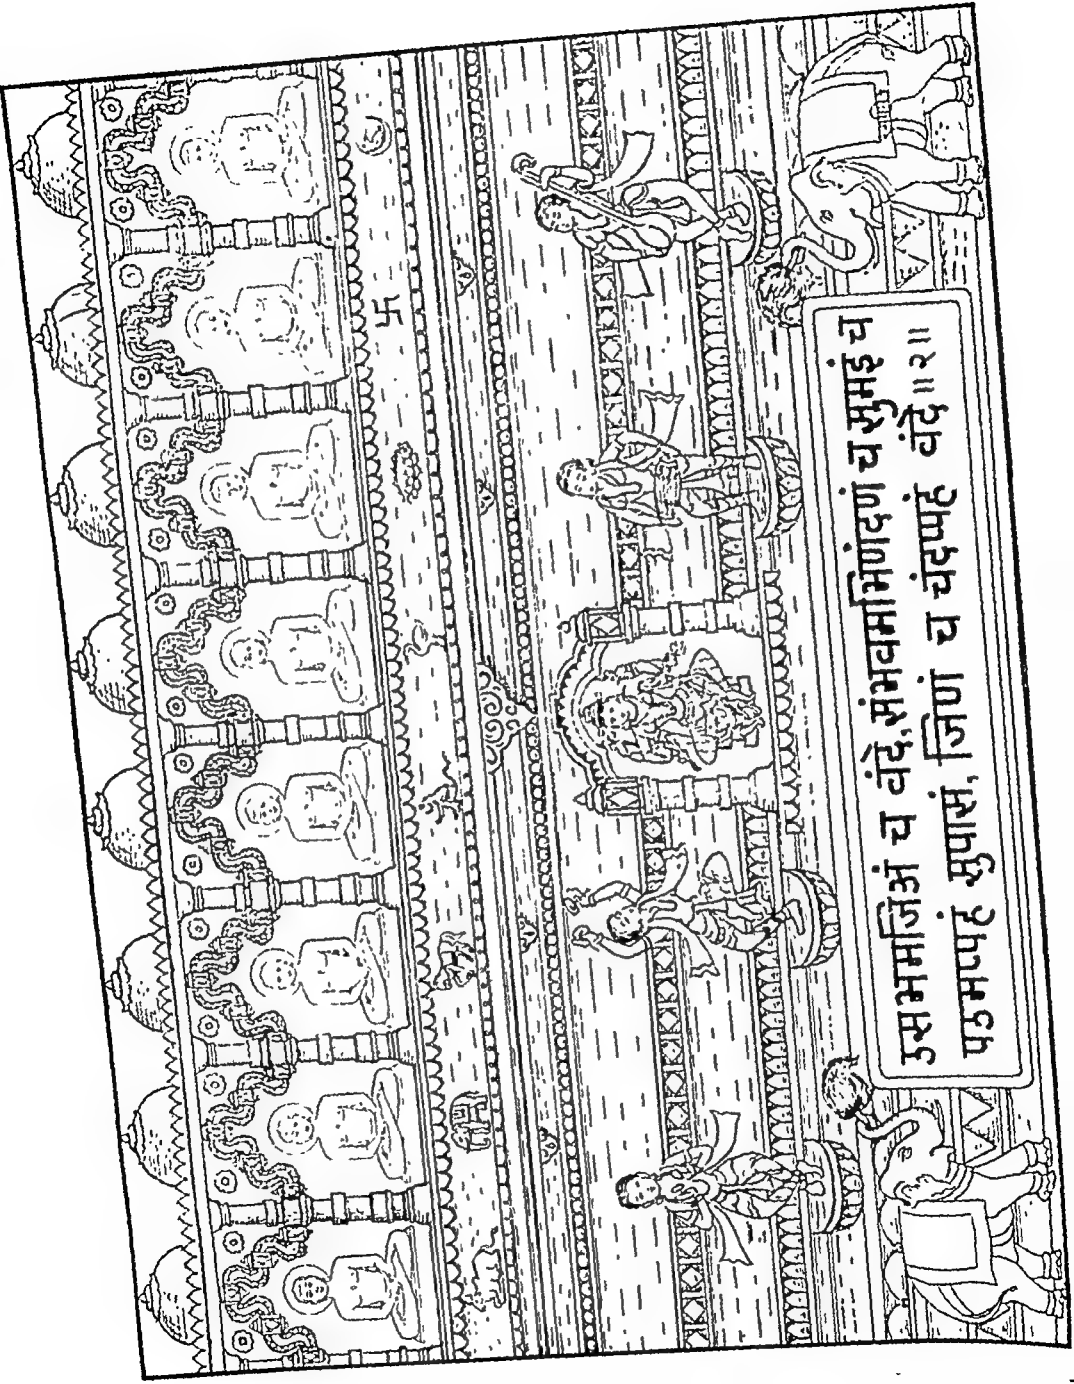 उसभमजिअं च वंदे,संभवमभिणंदणं च सुमइं च
पउमप्पहं सुपासं, जिणं च चंदप्पहं वंदे॥२॥